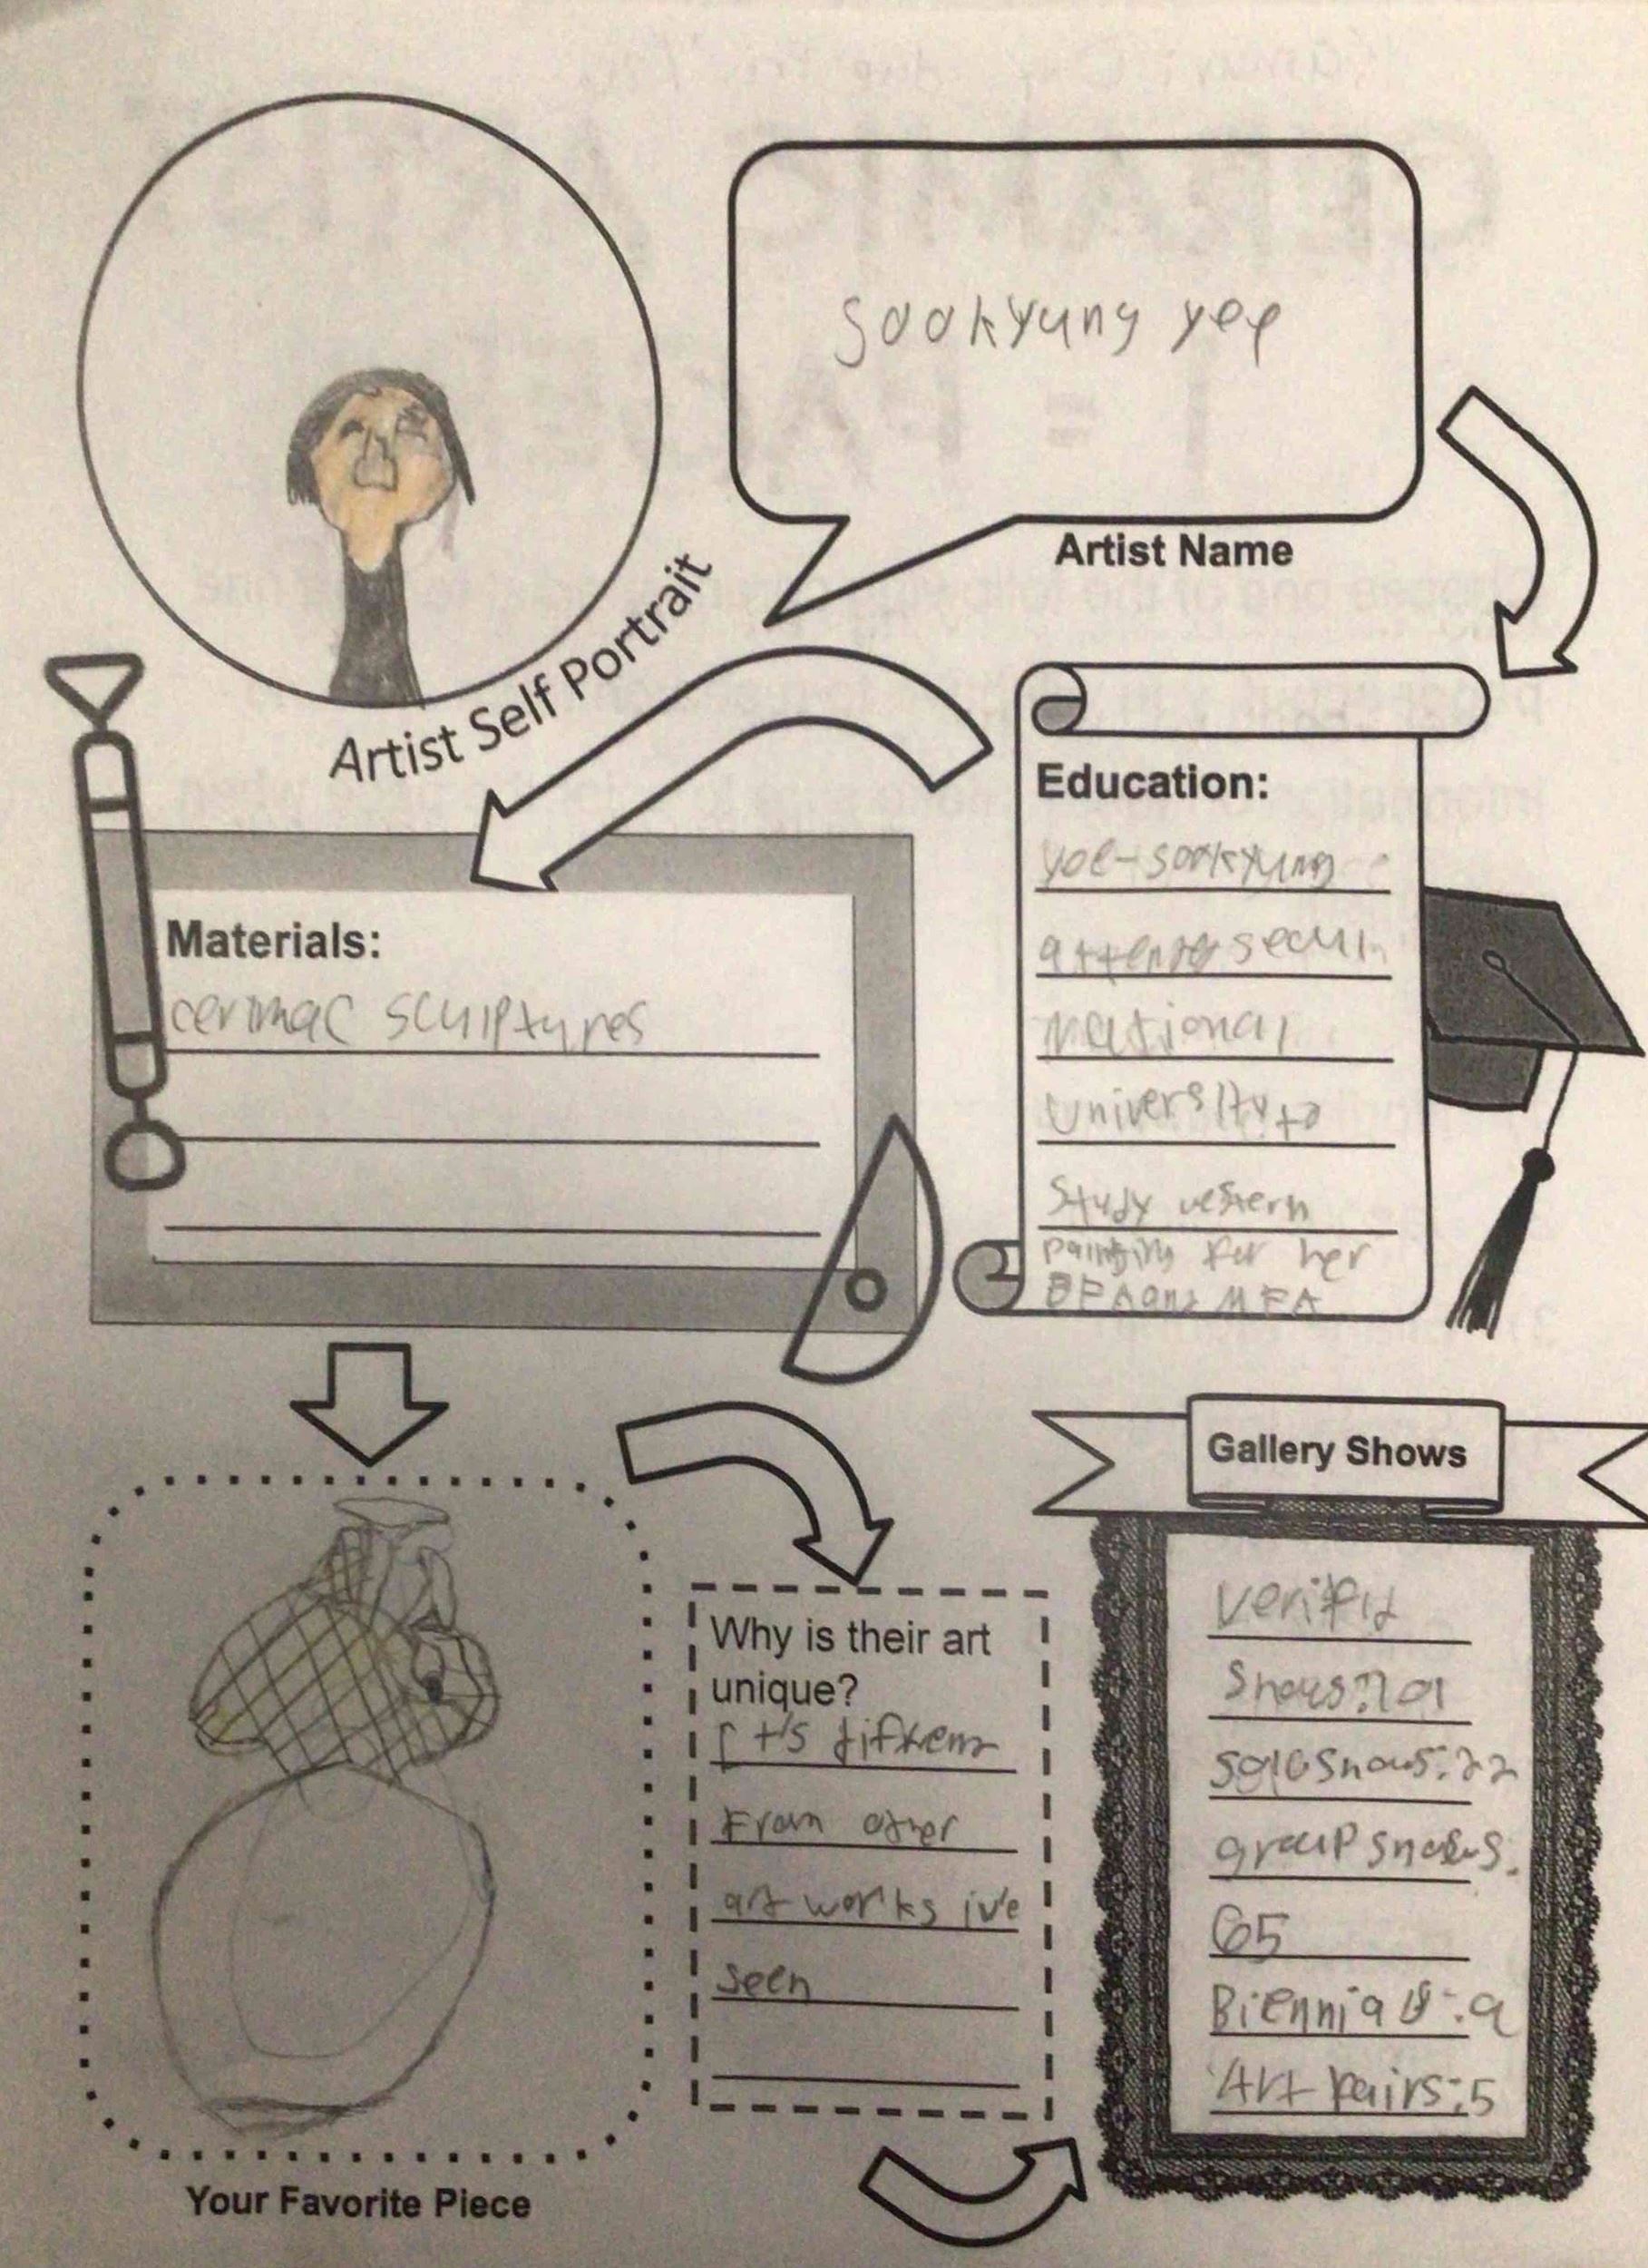 sookyung yee
Artist Name
Artist Self Portrait
Education:
yee-sookyung
national
University to
Study western
painting for her
BFA and MFA
Materials:
cermac sculptures
Why is their art
unique?
It's
From other
art works ive
seen
Your Favorite Piece
Gallery Shows
solo shows:22
group shows:
65
:9
Art Fairs:5